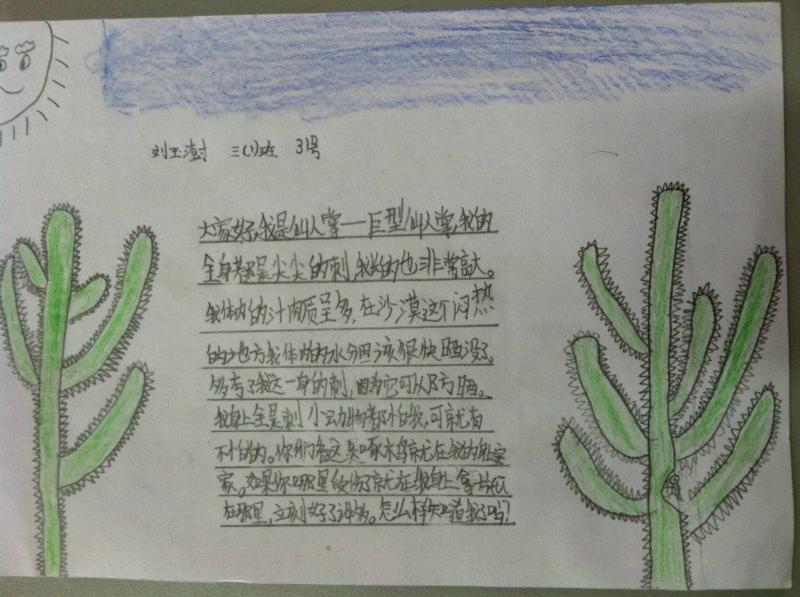 刘玉澍 三(1)班 31号
大家好,我是仙人掌——巨型仙人掌,我的
全身都是尖尖的刺,我长的也非常高大。
我体内的汁肉质呈多,在沙漠这个闷热
的地方我体内的水分因该很快晒没了。
多亏了我这一身的刺,因为它可以防晒。
我身上全是刺 小动物都怕我,可就有
不怕的。你们看这只啄木鸟就在我的身安
家。如果你哪里受伤了就在我身上拿片
在那里,立刻好了许多。怎么样知道我了吗?